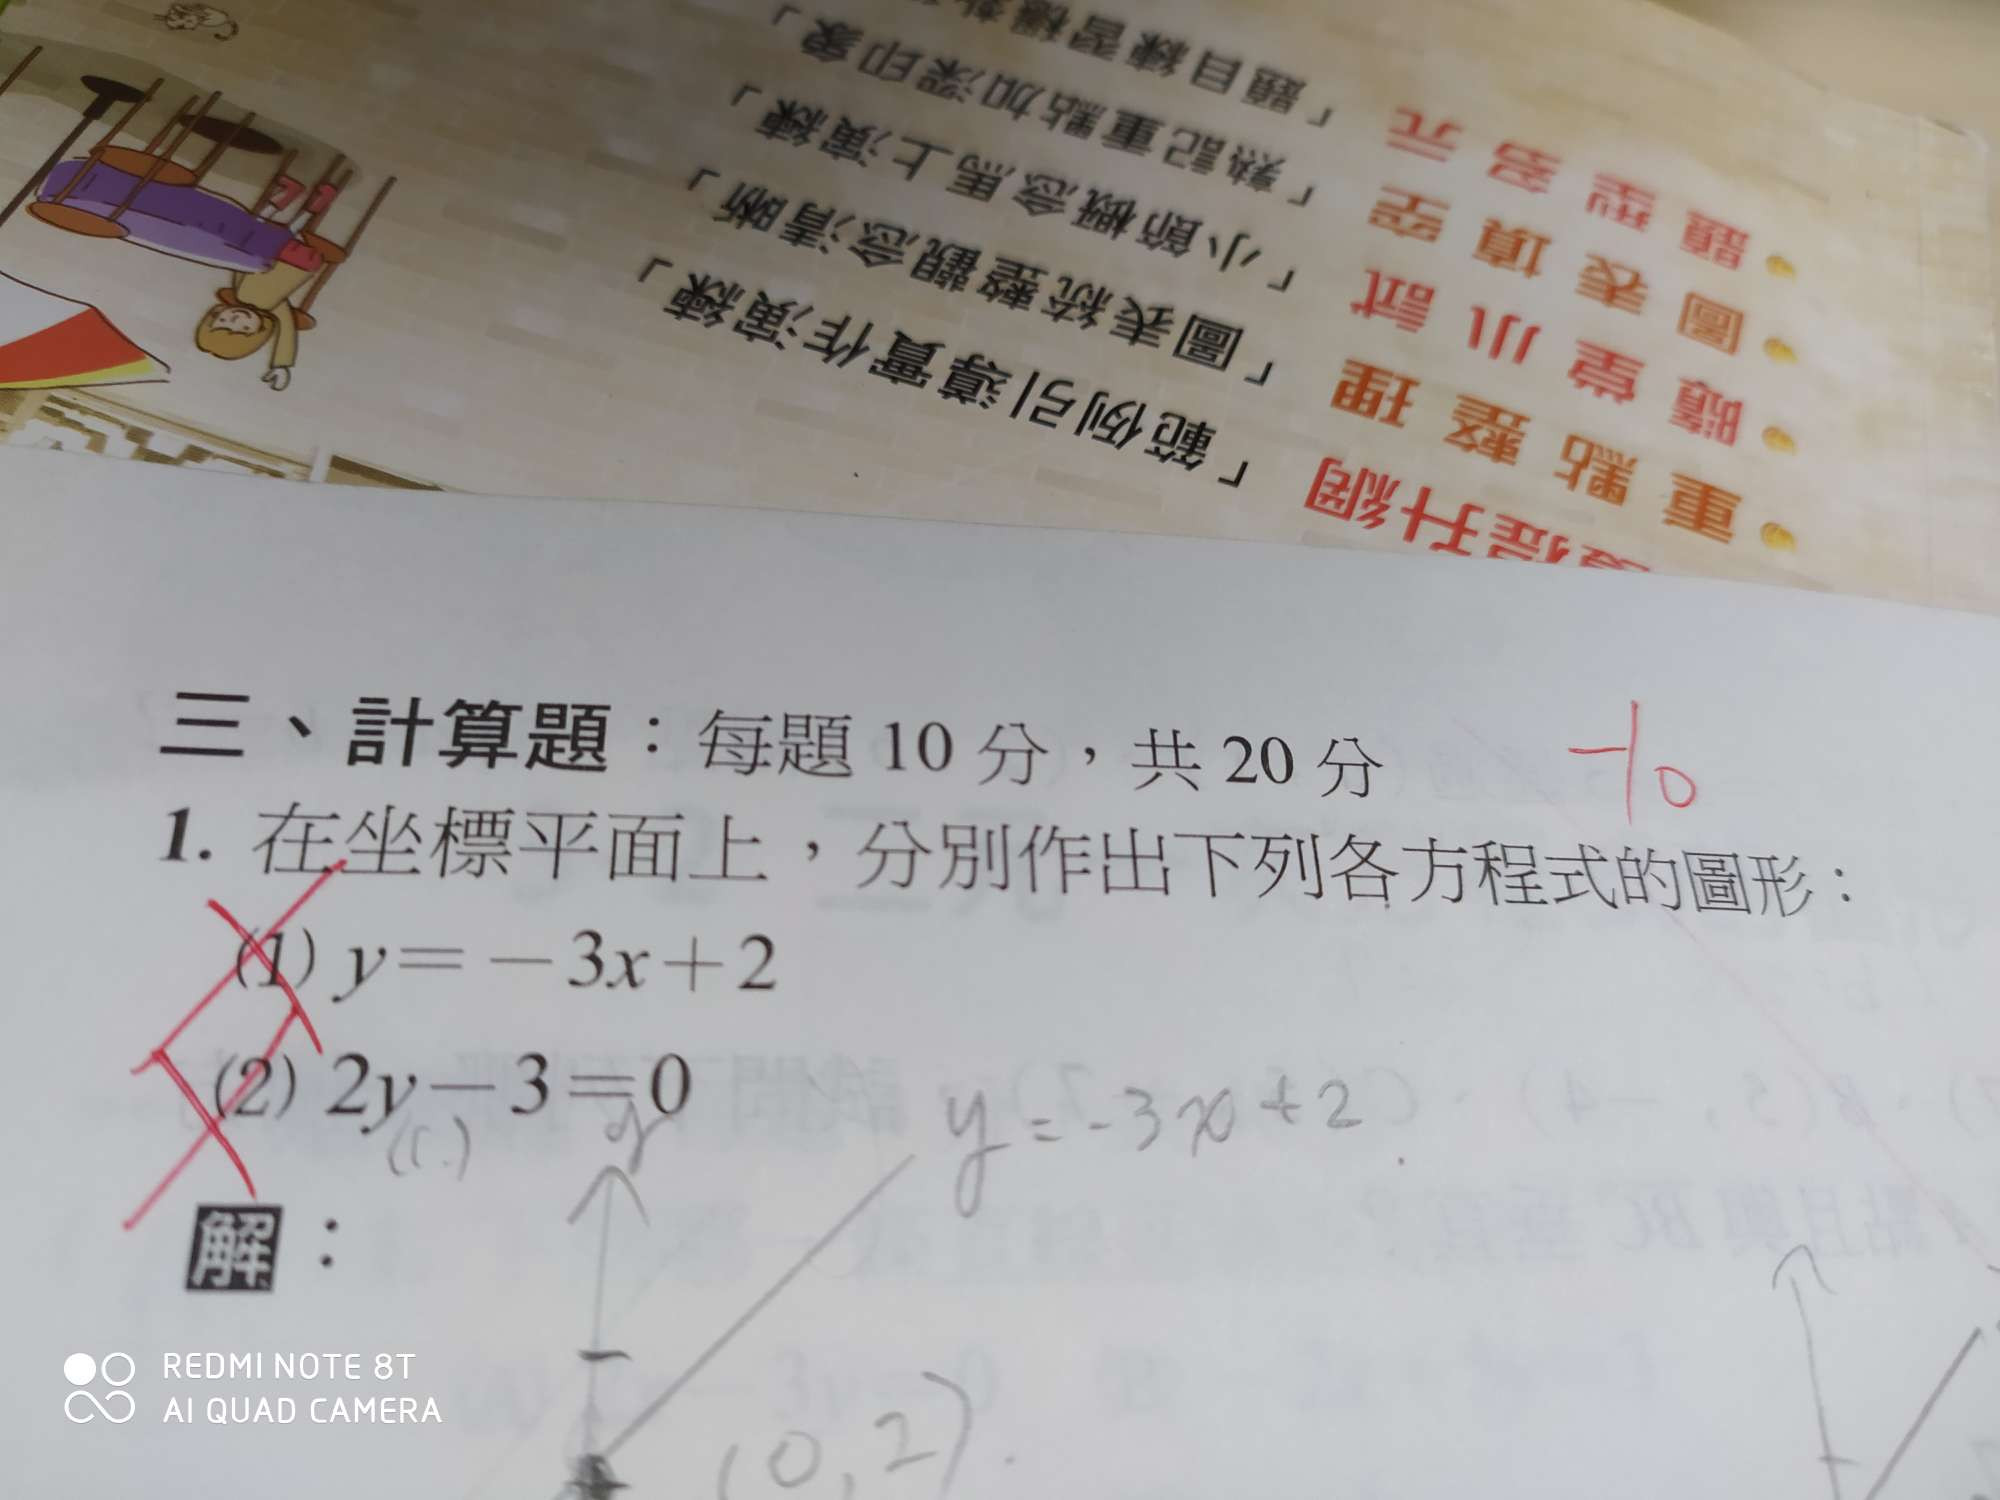 「題目練習
「熟記重點加深印象」
「小節概念馬上演練」
「圖表統整觀念清晰」
「範例引導實作演練」
題型多元
圖表填空
隨堂小試
重點整理
提升網
三、計算題：每題 10 分，共 20 分
-10
1. 在坐標平面上，分別作出下列各方程式的圖形：
(1) y＝－3x＋2
(2) 2y－3＝0
(1.)
y
y = -3x + 2.
解：
(0, 2).
REDMI NOTE 8T
AI QUAD CAMERA